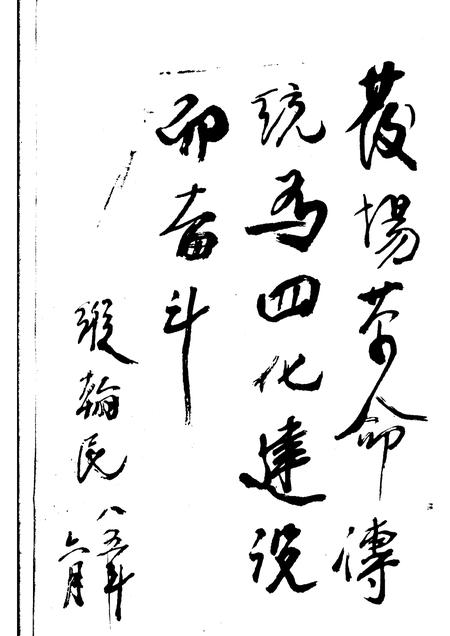 發揚革命傳
統為四化建設
而奋斗
張翰民
八五年
六月